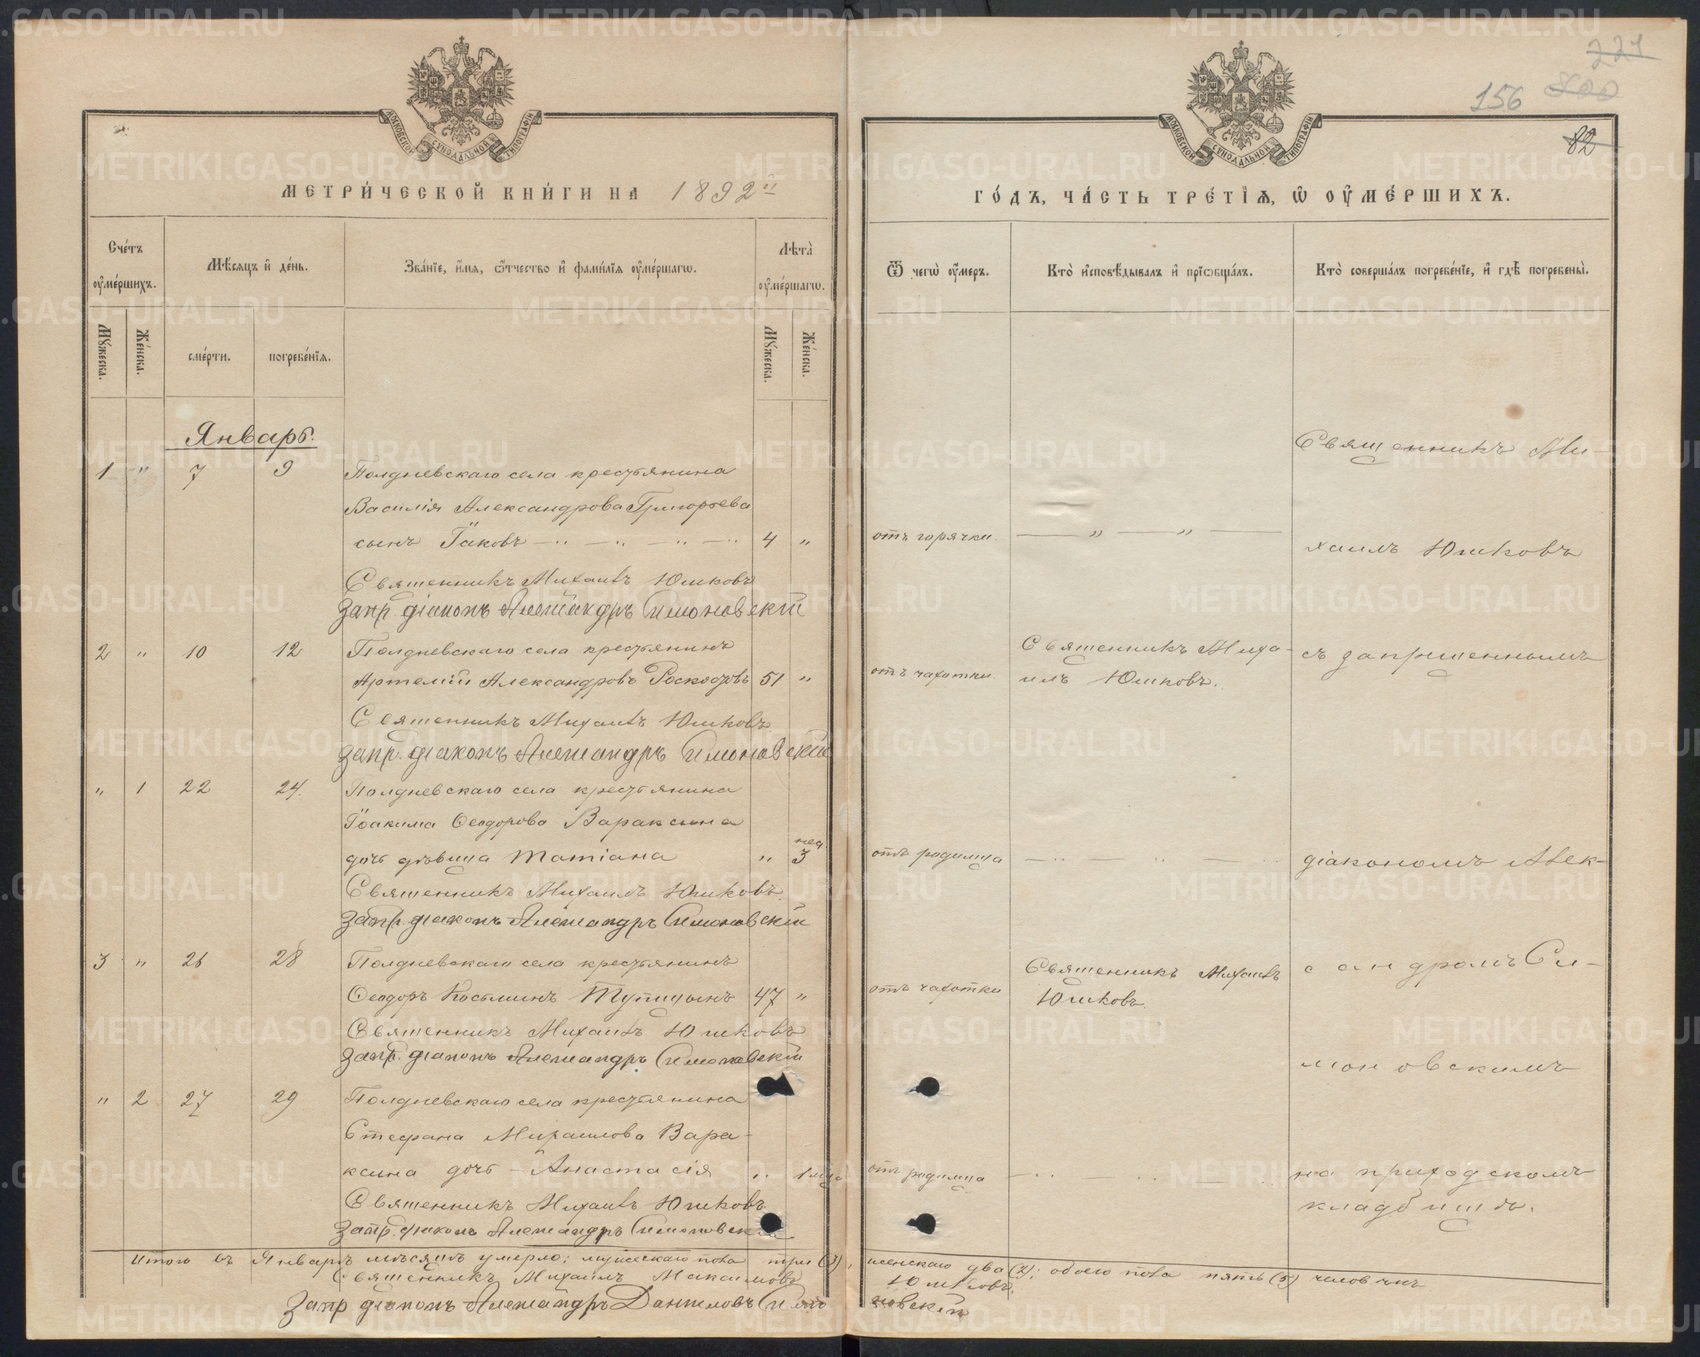 221
156 800
82
МЕТРИ́ЧЕСКОЙ КНИ́ГИ НА 1892й
ГО́ДЪ, ЧА́СТЬ ТРЕ́ТІѦ, Ѡ ОУМЕ́РШИХЪ.
Счётъ оумершихъ.
Мѣсяцъ и день.
Званіе, имя, отчество и фамилія оумершагѡ.
Лѣта оумершагѡ.
Ѿ чегѡ оумеръ.
Кто исповѣдывалъ и пріѡбщалъ.
Кто совершалъ погребеніе, и гдѣ погребены.
Мужеска.
Женска.
смерти.
погребенія.
Мужеска.
Женска.
Январь.
1 " 7 9 Полдневскаго села крестьянина
Василія Александрова Григорьева
сынъ Іаковъ 4 " отъ горячки. — " — " —
Священникъ Михаилъ Юшковъ
Запр. діаконъ Александръ Симоновскій
2 " 10 12 Полдневскаго села крестьянинъ
Артемій Александровъ 51 " отъ чахотки. Священникъ Миха-
илъ Юшковъ.
Священникъ Михаилъ Юшковъ
Запр. діаконъ Александръ Симоновскій
" 1 22 24. Полдневскаго села крестьянина
Іоакима Ѳеодорова Вараксина
дочь дѣвица Татіана " 3 нед. отъ родимца
Священникъ Михаилъ Юшковъ.
Запр. діаконъ Александръ Симоновскій
3 " 26 28 Полдневскаго села крестьянинъ
Ѳеодоръ Козьминъ Тупицынъ 47 " отъ чахотки Священникъ Михаилъ
Юшковъ.
Священникъ Михаилъ Юшковъ
Запр. діаконъ Александръ Симоновскій
" 2 27 29 Полдневскаго села крестьянина
Стефана Михаилова Вара-
ксина дочь Анастасія " отъ родимца
Священникъ Михаилъ Юшковъ
Запр. діаконъ Александръ Симоновскій
Священникъ Ми-
хаилъ Юшковъ
съ запрещеннымъ
діакономъ Алек-
сандромъ Си-
моновскимъ
на приходскомъ
кладбищѣ.
Итого въ Январѣ мѣсяцѣ умерло: мужескаго пола три (3), женскаго два (2); обоего пола пять (5) человѣкъ
Священникъ Михаилъ Максимовъ Юшковъ
Запр діаконъ Александръ Даниловъ Симоновскій
METRIKI.GASO-URAL.RU